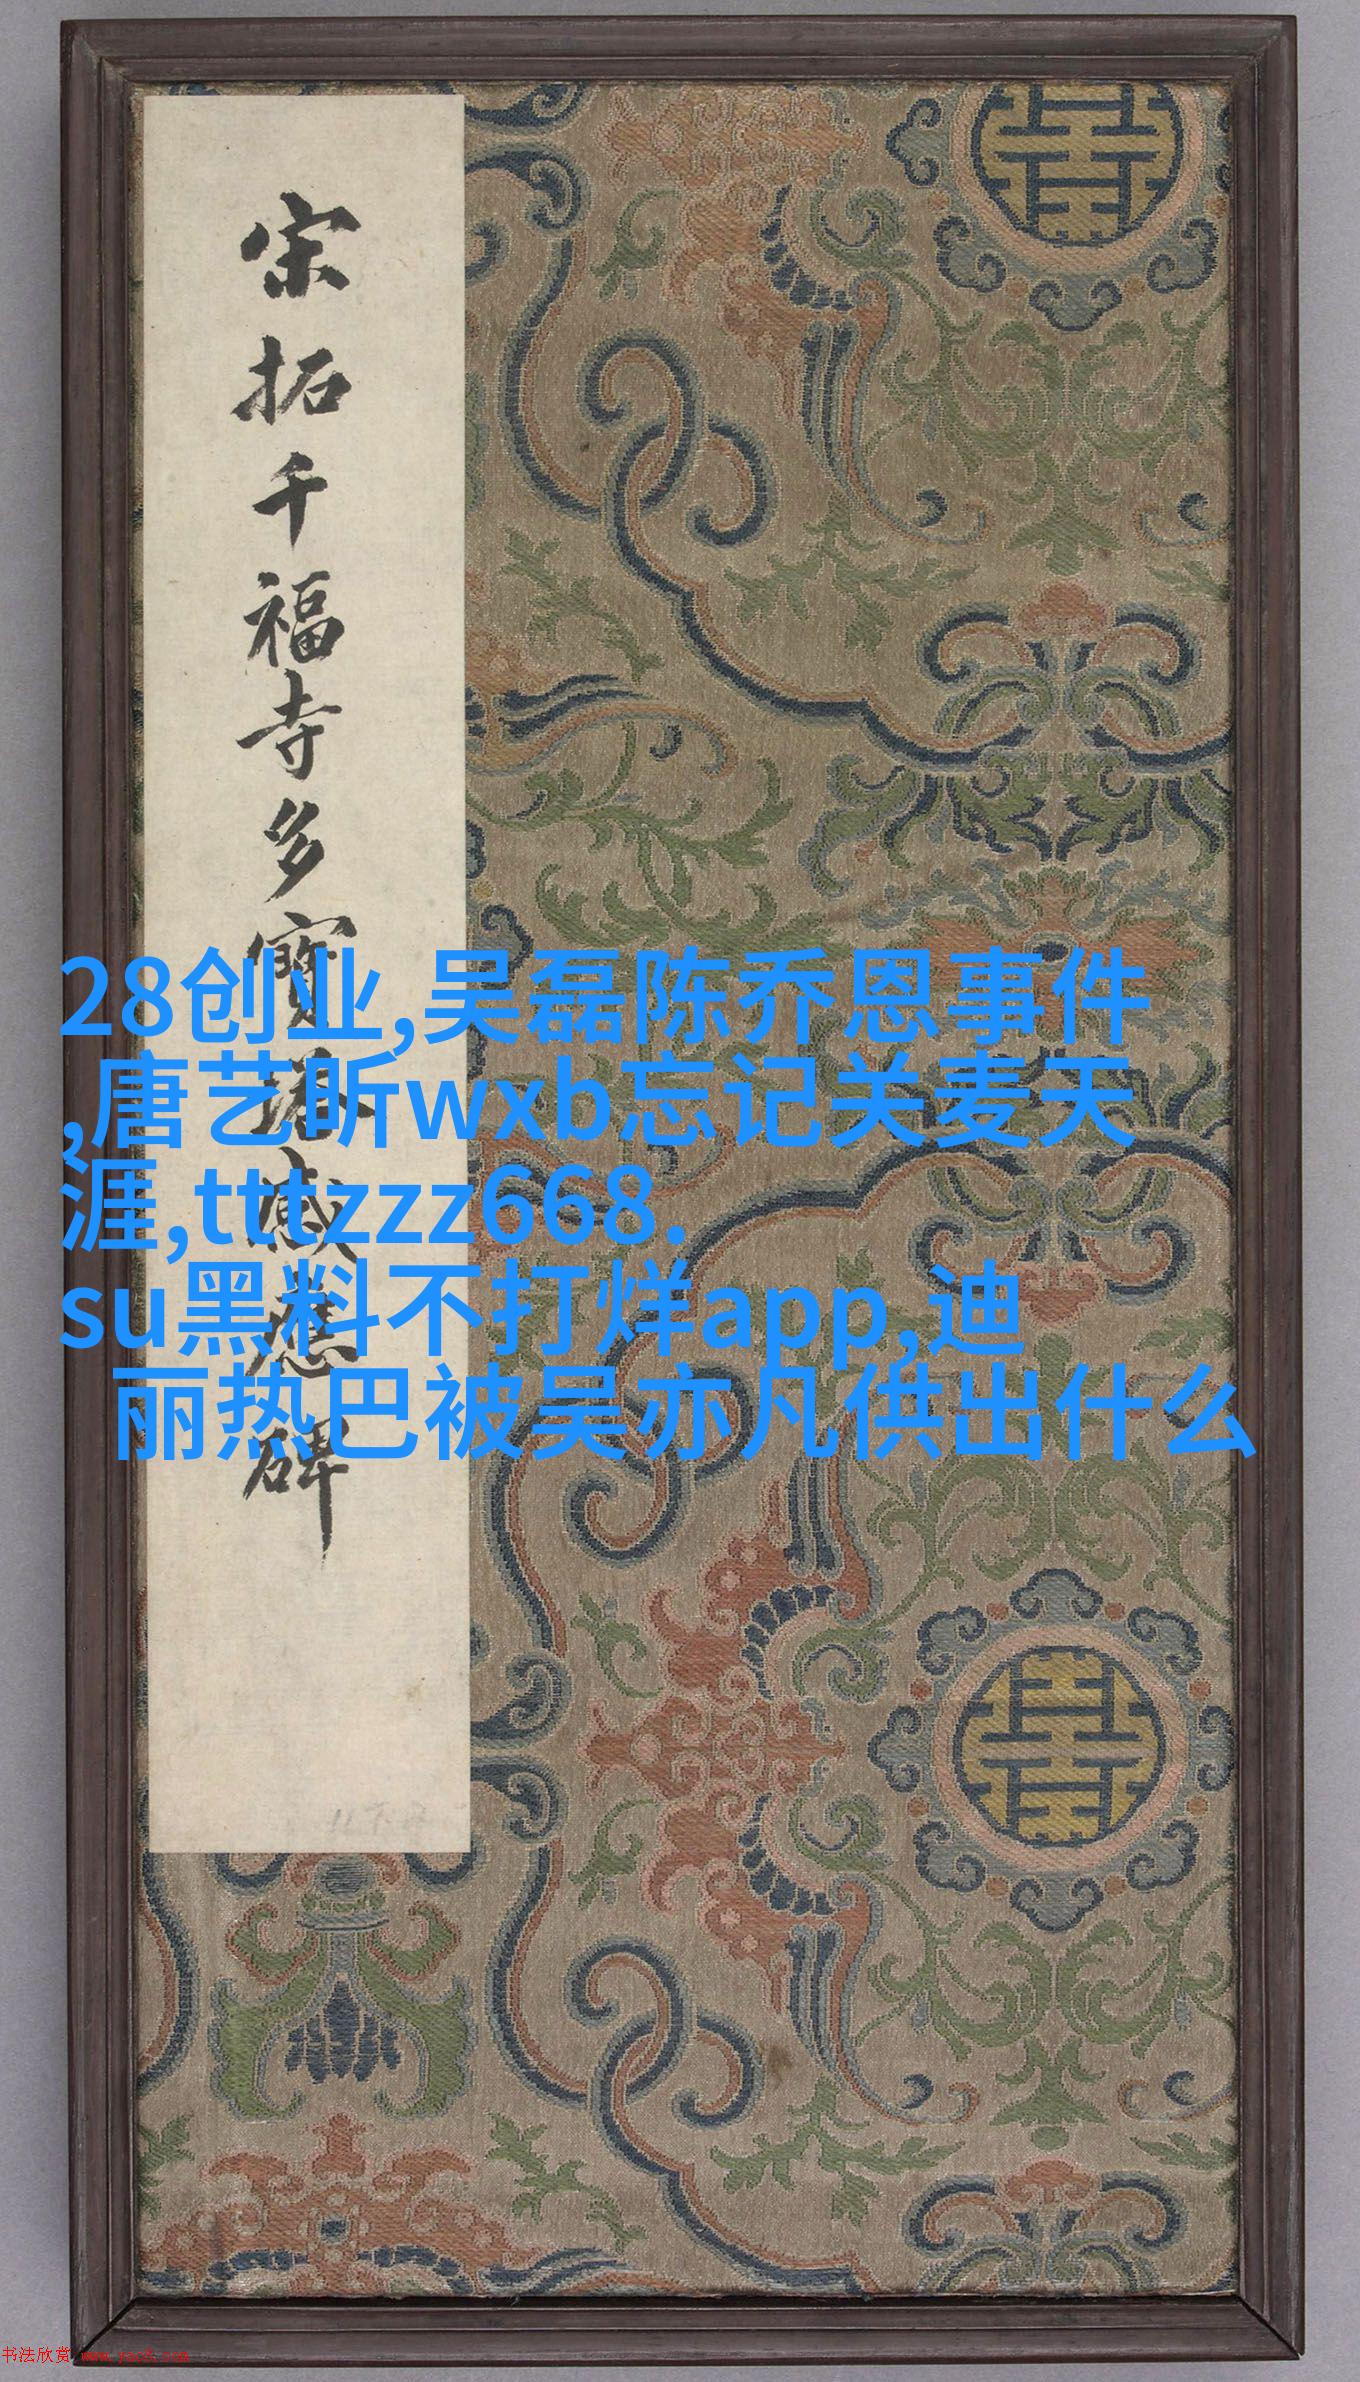 宋拓千福寺多寶塔感應碑
28创业,吴磊陈乔恩事件
,唐艺昕wxb忘记关麦天
涯,tttzzz668.
su黑料不打烊app,迪
丽热巴被吴亦凡供出什么
书法欣赏